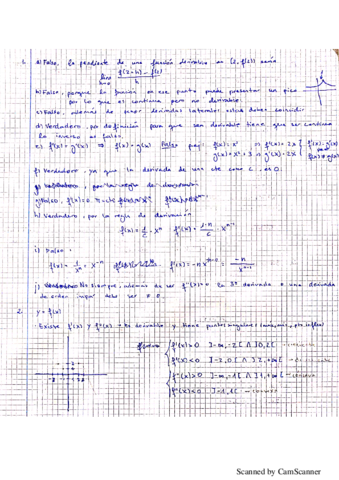 1. a) Falso, la pendiente de una función derivable en (2, f(2)) sería
lim f(2+h) - f(2) / h
b) Falso, porque la función en ese punto puede presentar un pico
por lo que es continua pero no derivable.
c) Falso, además de tener derivadas laterales estas deben coincidir
d) Verdadero, por definición para que sea derivable tiene que ser continua
lo inverso es falso.
e) f'(x) = g'(x) ⇒ f(x) = g(x) Falso f(x) = x² → f'(x) = 2x f'(x) = g'(x)
g(x) = x² + 3 → g'(x) = 2x f(x) ≠ g(x)
f) Verdadero, ya que la derivada de una cte como c, es 0.
g) Falso, f'(x) = 0
h) Verdadero, por la regla de derivación
f(x) = 1/c · xⁿ f'(x) =
i) Falso
f(x) = 1/xⁿ = x⁻ⁿ f'(x) = -n x⁻ⁿ⁻¹ = -n/xⁿ⁺¹
j) No siempre, además de ser f''(x) = 0 la 3ª derivada o una derivada
de orden impar debe ser ≠ 0.
2. y = f(x)
Existe f'(x) y f''(x) → Es derivable y tiene puntos
f'(x) > 0 ]-∞, -2[ ∧ ]0, 2[
f'(x) < 0 ]-2, 0[ ∧ ]2, +∞[
f''(x) > 0 ]-∞, -1[ ∧ ]1, +∞[
f''(x) < 0 ]-1, 1[
Scanned by CamScanner